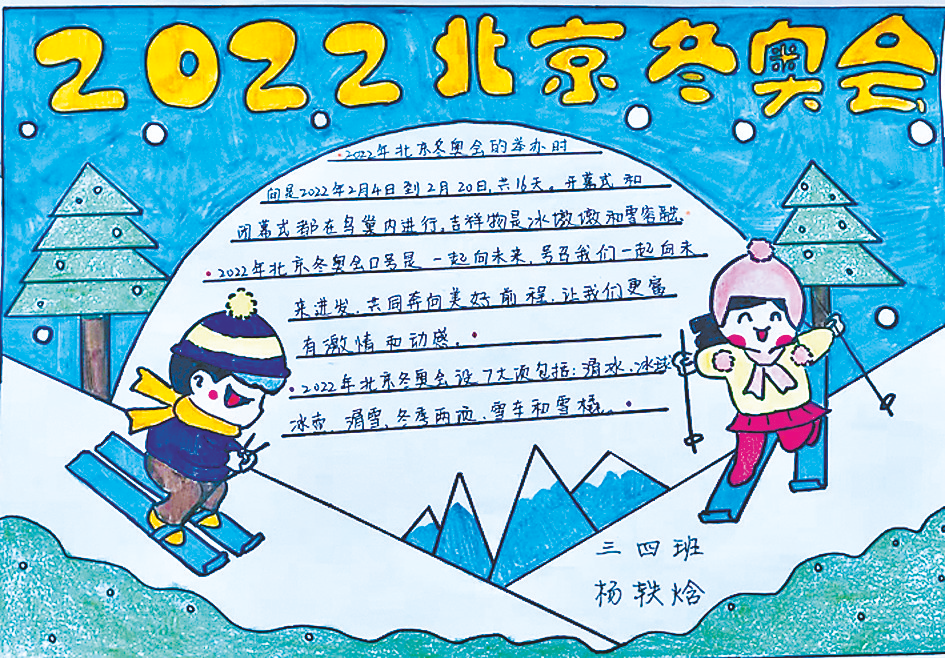 2022北京冬奥会
·2022年北京冬奥会的举办时
间是2022年2月4日到2月20日,共16天。开幕式和
闭幕式都在鸟巢内进行,吉祥物是冰墩墩和雪容融.
·2022年北京冬奥会口号是一起向未来,号召我们一起向未
来进发,共同奔向美好前程,让我们更富
有激情和动感.
·2022年北京冬奥会设7大项包括:滑冰.冰球
冰壶.滑雪.冬季两项.雪车和雪橇.
三四班
杨轶焓